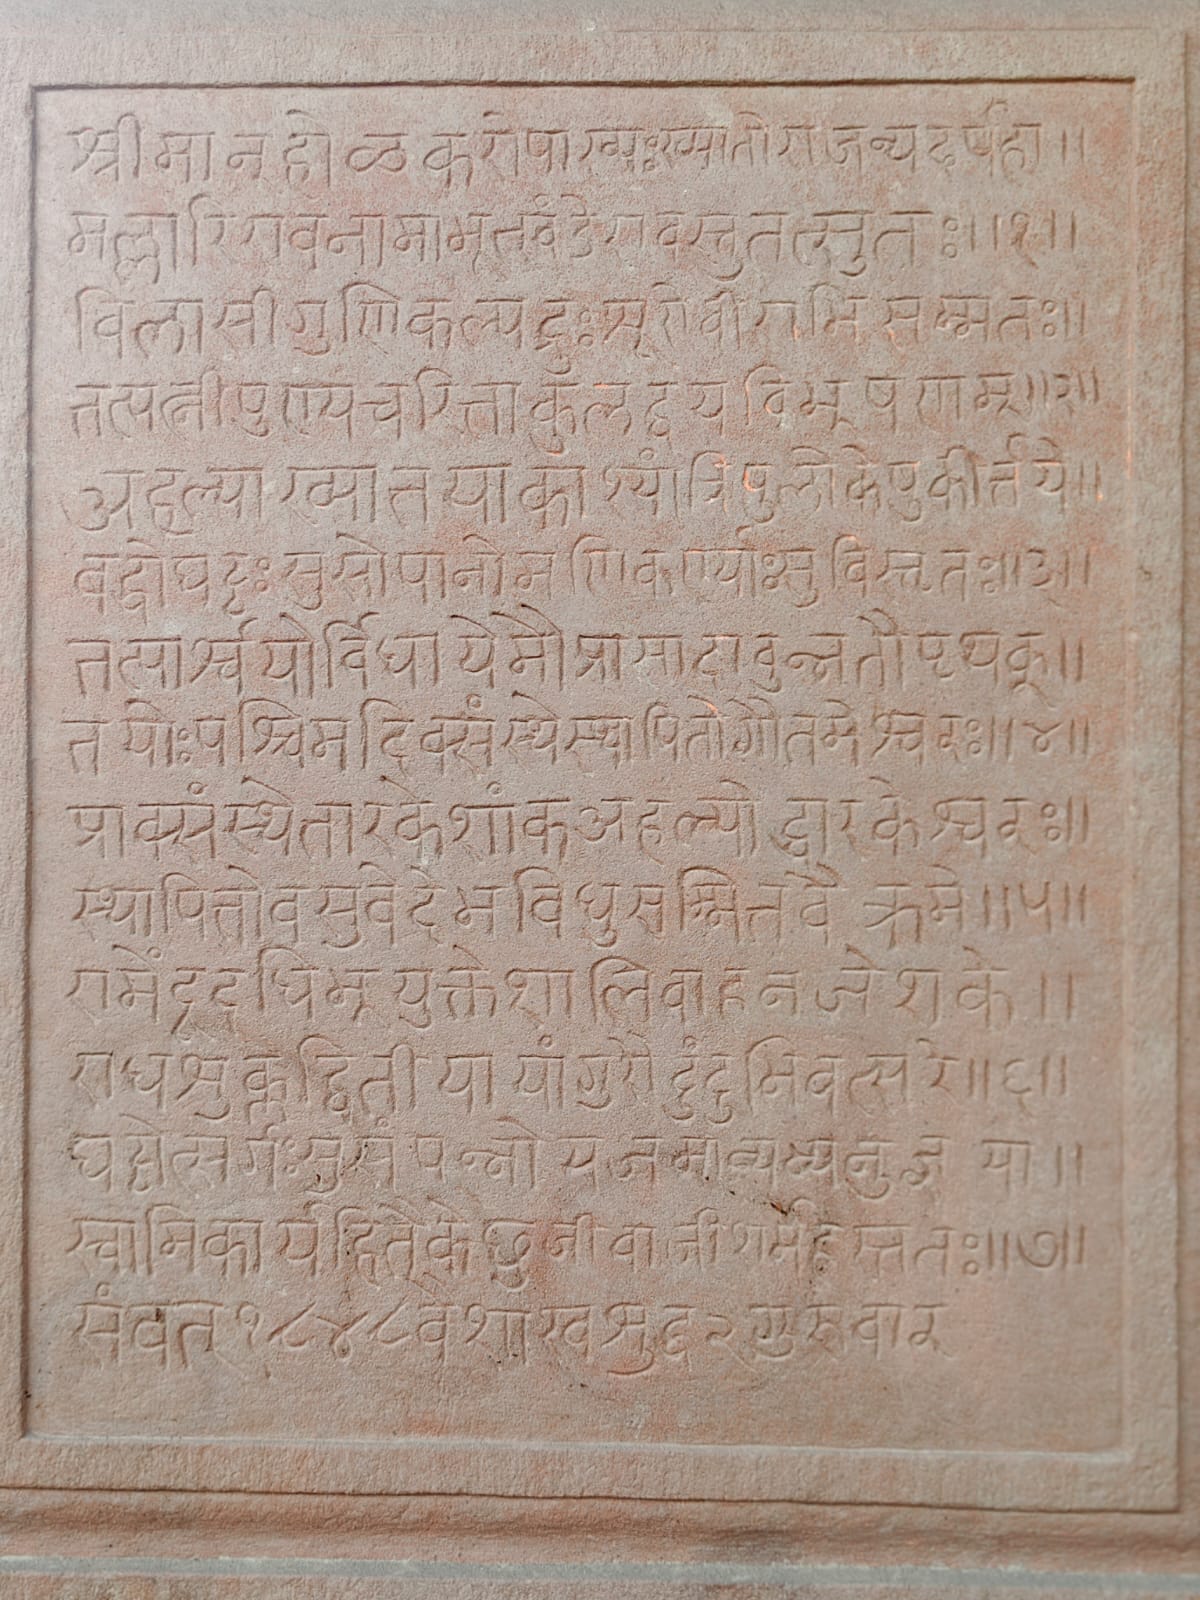 श्रीमानहोळकरोपाख्यःख्यातोराजन्यदर्पहा॥
मल्लारिरावनामाभूत्तखंडेरावस्तुतत्सुतः॥१॥
विलासीगुणिकल्पद्रुःशूरोवीराभिसम्मतः॥
तत्पत्नीपुण्यचरित्ताकुलद्वयविभूषणम्॥२॥
अहल्याख्यातयाकाश्यांत्रिषुलोकेषुकीर्त्तये॥
वद्धोघट्टःसुसोपानोमणिकर्ण्याःसुविस्तृतः॥३॥
तत्पार्श्वयोर्विधायेमौप्रासादावुन्नतौपृथक्॥
तयोःपश्चिमदिक्संस्थेस्थापितोगौतमेश्वरः॥४॥
प्राक्संस्थेतारकेशांकअहल्योद्धारकेश्वरः॥
स्थापितोवसुवेदेभविधुसम्मितवैक्रमे॥५॥
रामेंद्रूदधिभूयुक्तेशालिवाहनजेशके॥
राधशुक्लद्वितीयायांगुरौदुंदुभिवत्सरे॥६॥
घट्टोत्सर्गःसुसंपन्नोयजमान्यभ्यनुज्ञया॥
स्वामिकार्यहितैकेछुजीवाजीशर्महस्ततः॥७॥
संवत्१८४८वैशाखशुद्ध२गुरुवार